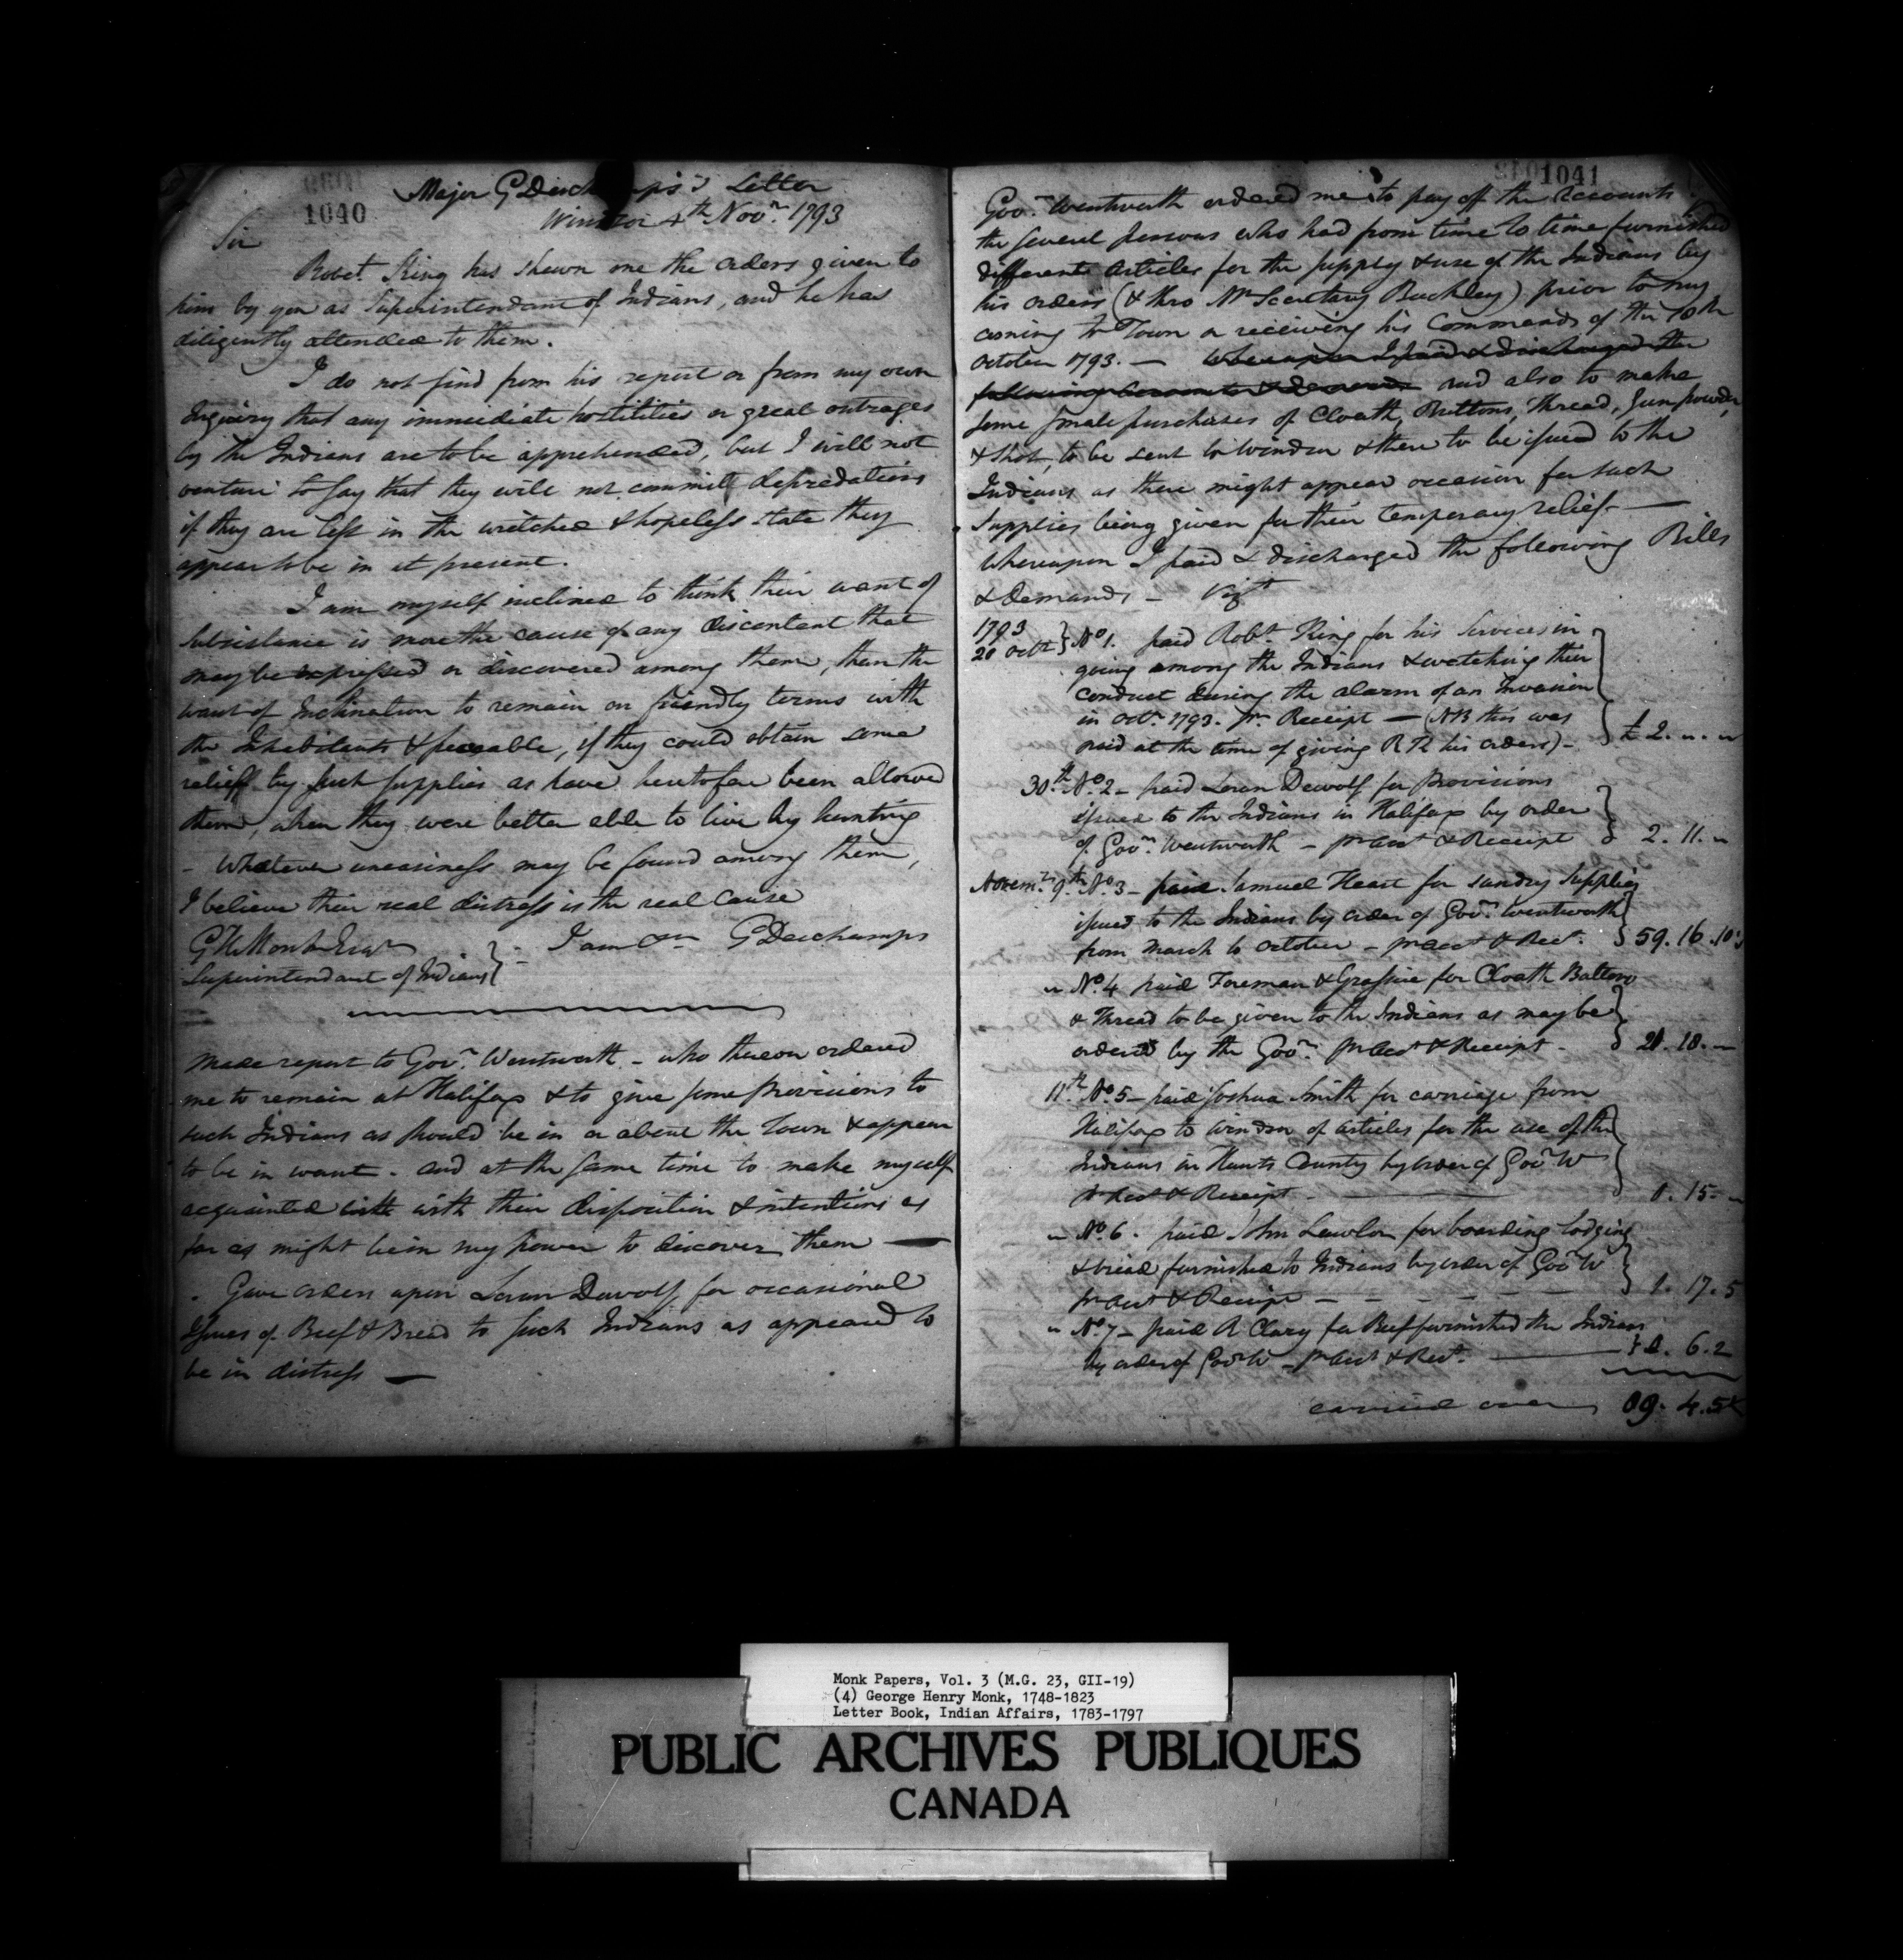 1040
Major G Deschamps's Letter
Windsor 4th Novr. 1793
Sir
Robt. King has shewn me the orders given to
him by you as Superintendant of Indians, and he has
diligently attended to them.
I do not find from his report or from my own
Inquiry that any immediate hostilities or great outrages
by the Indians are to be apprehended, but I will not
venture to say that they will not committ depredations
if they are left in the wretched & hopeless state they
appear to be in at present.
I am myself inclined to think their want of
Subsistance is more the cause of any discontent that
may be expressed or discovered among them, than the
want of Inclination to remain on friendly terms with
the Inhabitants & peaceable, if they could obtain some
relieff by such supplies as have heretofore been allowed
them, when they were better able to live by hunting
- Whatever uneasiness may be found among them,
I believe their real distress is the real cause
G H Monk Esqr } - I am &c G Deschamps
Superintendant of Indians
Made report to Govr. Wentworth - who thereon ordered
me to remain at Halifax & to give some provisions to
such Indians as should be in or about the Town & appear
to be in want - and at the same time to make myself
acquainted with with their disposition & intentions as
far as might be in my power to discover them —
Gave orders upon Loran Dewolf for occasional
Issues of Beef & Bread to such Indians as appeared to
be in distress —
1041
Govr. Wentworth ordered me to pay off the Accounts
the several persons who had from time to time furnished
different Articles for the supply & use of the Indians by
his orders (& thro Mr Secretary Buckley) prior to my
coming to Town or receiving his Commands of the 10th
October 1793. — Whereupon I paid & discharged the
following Accounts & demands and also to make
some small purchases of Cloath, Buttons, Thread, Gun powder,
& shot, to be sent to Windsor & there to be issued to the
Indians as there might appear occasion for such
supplies being given for their temporary relief. —
Whereupon I paid & discharged the following Bills
& Demands — Vizt
1793
20 Octr } No 1. paid Robt. King for his Services in
going among the Indians & watching their
conduct during the alarm of an Invasion
in Octr. 1793. pr. Receipt — (NB this was
paid at the time of giving R K his orders) - £ 2. " . "
30th. No. 2 - paid Loran Dewolf for Provisions
issued to the Indians in Halifax by order
of Govr. Wentworth - pr Acct & Receipt } 2. 11. "
Novemr. 9th. No. 3 - paid Samuel Heart for sundry Supplies
issued to the Indians by order of Govr. Wentworth
from March to October - pr Acct & Rect. } 59. 16. 10
" No. 4 paid Foreman & Grassie for Cloath Buttons
& Thread to be given to the Indians as may be
ordered by the Govr. pr Acct & Receipt - } 21. 18. "
11th No. 5 - paid Joshua Smith for carriage from
Halifax to Windsor of articles for the use of the
Indians in Hants County by order of Govr W
pr Acct & Receipt - 0. 15. "
" No. 6. paid John Lawlor for boarding lodging
& bread furnished to Indians by order of Govr W
pr Acct & Receipt - - - - - 1. 17. 5
" No. 7 - paid R Clary for Beef furnished the Indians
by order of Govr W - pr Acct & Rect. — } 0. 6. 2
carried over 89. 4. 5
Monk Papers, Vol. 3 (M.G. 23, GII-19)
(4) George Henry Monk, 1748-1823
Letter Book, Indian Affairs, 1783-1797
PUBLIC ARCHIVES PUBLIQUES
CANADA